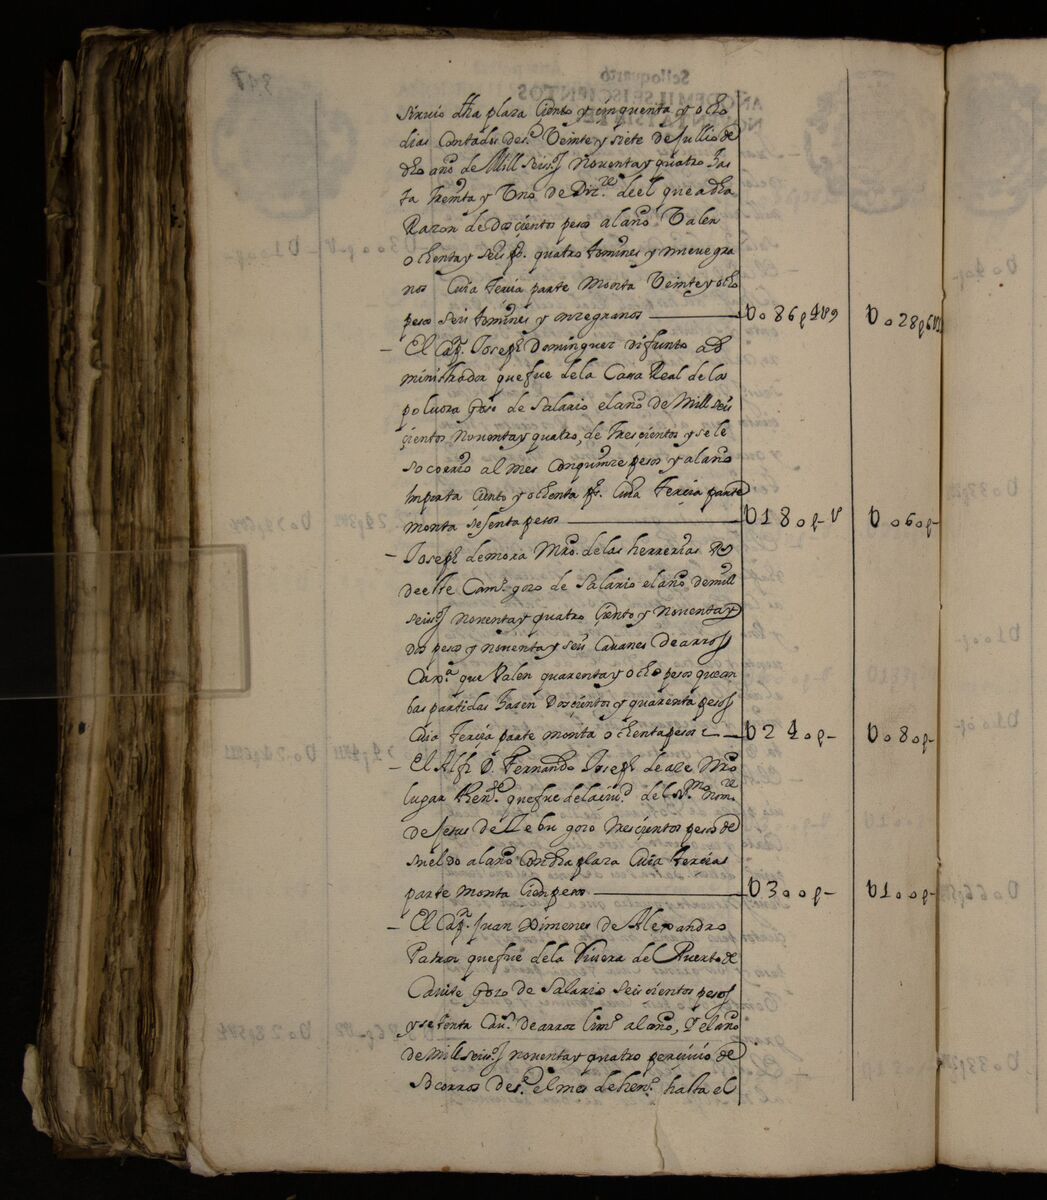 siruio dha plaza Çiento y çinquenta y ocho
dias Contados des.e Veinte y siete de Jullio de
dho año de Mill seis.s Nouenta y quatro has
ta treinta y Vno de Diz.re de el que a dha
Razon de dosçientos pesos al año Valen
ochenta y seis p.s quatro tomines y nueue gra
nos Cuia terçia parte Monta Veinte y ocho
pesos seis tomines y onze granos — U o 86 p 4 U 9 U o 28 p 6 U
– El Cap.n Joseph Dominguez Difunto ad
ministrador que fue de la Cassa Real de la
poluora Goso de Salario el año de Mill seis
çientos Nouenta y quatro, de tresçientos y se le
socorrio al mes Con quinze pesos y al año
Importa Çiento y ochenta p.s Cuia terçia parte
monta sesenta pesos — U 1 8 o p – U U o 6 o p –
– Joseph de mora Mro. de las herrerias R.s
de este Cam.o gozo de Salario el año de mill
seis.s nouenta y quatro Çiento y Nouenta y
dos pesos y nouenta y seis Cauanes de arros
que Valen quarenta y ocho pesos que am
bas partidas hasen Dosçientos y quarenta pesos
Cuia terçia parte monta ochenta pesos — U 2 4 o p – U o 8 o p –
– El Alf.z D. Fernando Joseph de aze Mro
lugar then.te que fue de la ciu.d del S.mo nom.re
de Jesus de Zebu gozo tresçientos pesos de
sueldo al año Con dha plaza Cuia terçias
parte monta Çien pesos — U 3 o o p – U 1 o o p –
– El Cap.n Juan Ximenes de Alexandro
Patron que fue de la Riuera del Puerto de
Cauite Gozo de Salario seis cientos pesos
y setenta Cau.s de arroz limº al año, y el año
de Mill seis.s nouenta y quatro perçiuio de
Socorros des.e el mes de hen.o hasta el